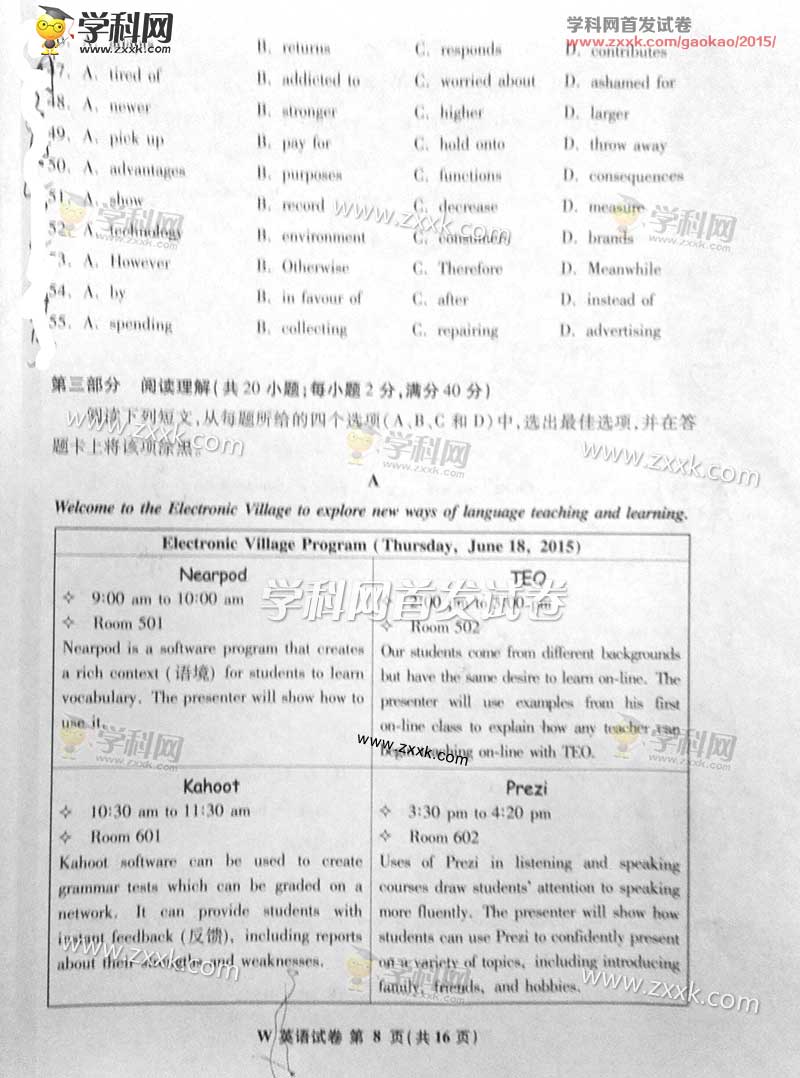 学科网
学科网首发试卷
www.zxxk.com/gaokao/2015/
B. returns C. responds D. contributes
47. A. tired of B. addicted to C. worried about D. ashamed for
48. A. newer B. stronger C. higher D. larger
49. A. pick up B. pay for C. hold onto D. throw away
50. A. advantages B. purposes C. functions D. consequences
51. A. show B. record C. decrease D. measure
52. A. technology B. environment C. consumers D. brands
53. A. However B. Otherwise C. Therefore D. Meanwhile
54. A. by B. in favour of C. after D. instead of
55. A. spending B. collecting C. repairing D. advertising
第三部分 阅读理解(共20小题;每小题2分,满分40分)
阅读下列短文,从每题所给的四个选项(A、B、C和D)中,选出最佳选项,并在答
题卡上将该项涂黑。
A
Welcome to the Electronic Village to explore new ways of language teaching and learning.
Electronic Village Program (Thursday, June 18, 2015)
Nearpod
✧ 9:00 am to 10:00 am
✧ Room 501
Nearpod is a software program that creates
a rich context (语境) for students to learn
vocabulary. The presenter will show how to
use it.
TEO
✧ 2:00 pm to 3:00 pm
✧ Room 502
Our students come from different backgrounds
but have the same desire to learn on-line. The
presenter will use examples from his first
on-line class to explain how any teacher can
begin teaching on-line with TEO.
Kahoot
✧ 10:30 am to 11:30 am
✧ Room 601
Kahoot software can be used to create
grammar tests which can be graded on a
network. It can provide students with
instant feedback (反馈), including reports
about their strengths and weaknesses.
Prezi
✧ 3:30 pm to 4:20 pm
✧ Room 602
Uses of Prezi in listening and speaking
courses draw students' attention to speaking
more fluently. The presenter will show how
students can use Prezi to confidently present
on a variety of topics, including introducing
family, friends, and hobbies.
学科网首发试卷
www.zxxk.com
W 英语试卷 第 8 页(共 16 页)